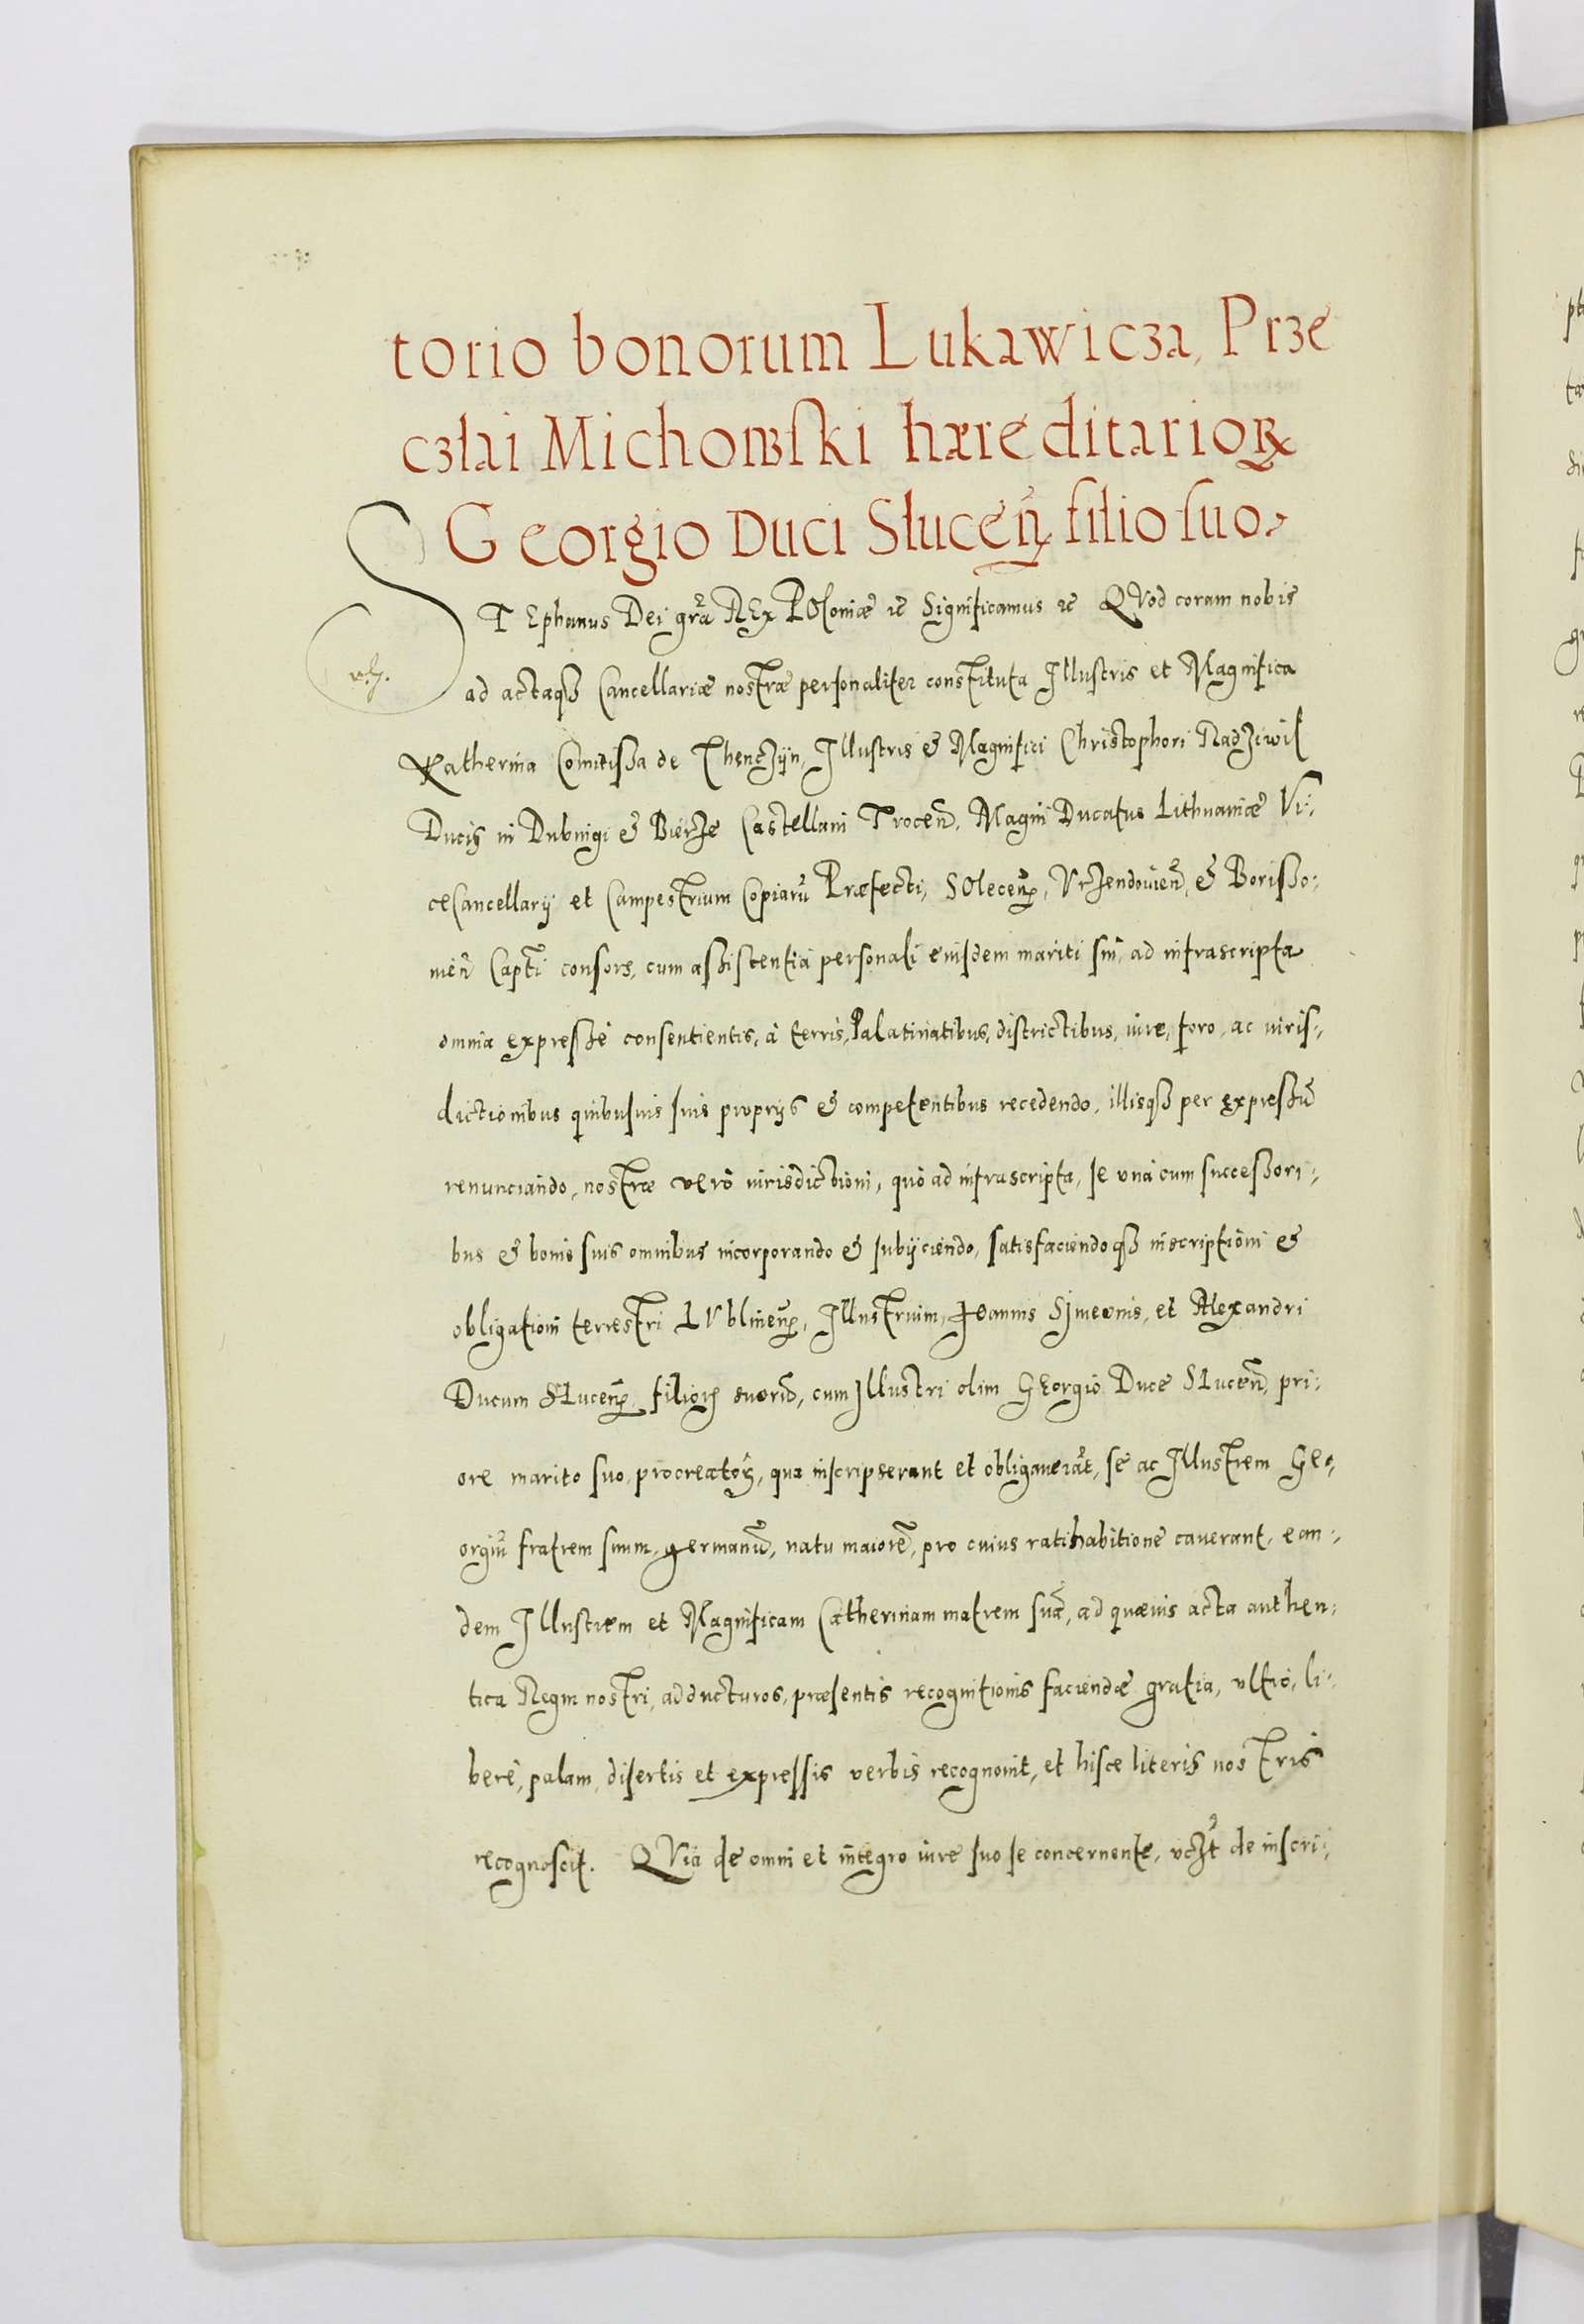 torio bonorum Lukawicza, Prze
czlai Michowski hæreditarioꝝ
Georgio Duci Slucen̄ filio suo.
STEphanus Dei gra̅ REx POloniæ ꝛc Significamus ꝛc QVod coram nobis
ad actaqꝫ Cancellariæ nostræ personaliter constituta Illustris et Magnifica
Katherina Comitissa de Thenczijn, Illustris & Magnifici Christophori Radziwil
Ducis in Dubingi & Bierze Castellani Trocen̄, Magni Ducatus Lithuaniæ Vi:
ceCancellarij et Campestrium Copiarū Præfecti, SOlecen̄, Vrzendouien̄, & Borisso:
uien̄ Capti̅ consors, cum assistentia personali eiusdem mariti sui, ad infrascripta
omnia expressè consentientis, à terris, Palatinatibus, districtibus, iure, foro, ac iuris,
dictionibus quibusuis suis proprijs & competentibus recedendo, illisqꝫ per expressū
renunciando, nostræ verò iurisdictioni, quò ad infrascripta, se vnà cum successori:
bus & bonis suis omnibus incorporando & subijciendo, satisfaciendoqꝫ inscriptioni &
obligationi terrestri LVblinen̄, Illustrium, Joannis Simeonis, et Alexandri
Ducum SLucen̄ filioꝝ suorū, cum Illustri olim GEorgio Duce SLucen̄, pri:
ore marito suo, procreatoꝝ, qua inscripserant et obligauerāt, se ac Illustrem Geo,
orgiū fratrem suum, germanū, natu maiorē, pro cuius ratihabitione cauerant, ean:
dem Illustrem et Magnificam Catherinam matrem suā, ad quæuis acta authen:
tica Regni nostri, adducturos, præsentis recognitionis faciendæ gratia, vltrò, li:
berè, palam, disertis et expressis verbis recognouit, et hisce literis nostris
recognoscit. QVia de omni et integro iure suo se concernente, vczt̄ de inscri: